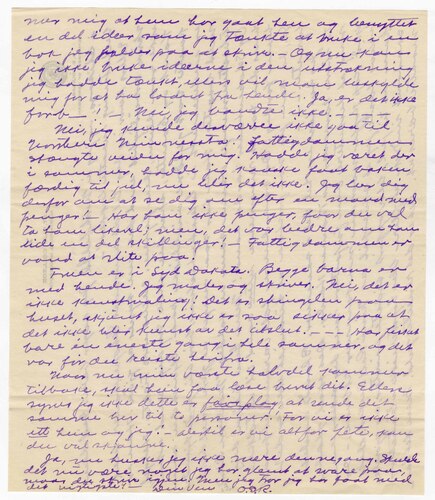 nær mig at hun har gaat hen og benyttet
en del ideer som jeg tænkte at bruke i en
bok jeg paa at skrive. - Og nu kan
jeg ikke bruke ideerne i den utstrækning
jeg hadde tænkt ellers vil man beskylde
mig for at ha laant fra hende. Ja, er det ikke
forb— — Nei, jeg bandte ikke. - - - - -
Nei, jeg kunde desværre ikke gaa til
Northern Minnesota. Fattigdommen
stængte veien for mig. Hadde jeg været der
i sommer, hadde jeg kanske faat boken
færdig til jul, nu blir det ikke. Jeg ber dig
derfor om at se dig om efter en mand med
penger! - Har han ikke penger, faar du vel
ta ham likevel; men, det var bedre om han
eide en del skillinger! - Fattigdommen er
vond at slite paa!
Fruen er i Syd Dakota. Begge barna er
med hende. Jeg maler og skriver. Nei, det er
ikke kunstmaling! Det er shinglen paa
huset, skjønt jeg ikke er saa sikker paa at
det ikke blir kunst av det ogsaa. - - - Har fisket
bare en eneste gang i hele sommer, og det
var før du reiste herifra.
Naar nu min værste halvdel kommer
tilbake, skal hun faa læse brevet dit. Ellen
synes jeg ikke dette er fair play at sende dit
sammen her til to personer! For vi er ikke
ett hun og jeg! - dertil er vi altfor fete, kan
du vel skjønne.
Ja, nu husker jeg ikke mere denne gang. Skulde
det nu være noget jeg har glemt at svare paa,
maa du skrive igjen. Men jeg tror jeg har faat med
det vigtigste! - Din ven O.S.R.